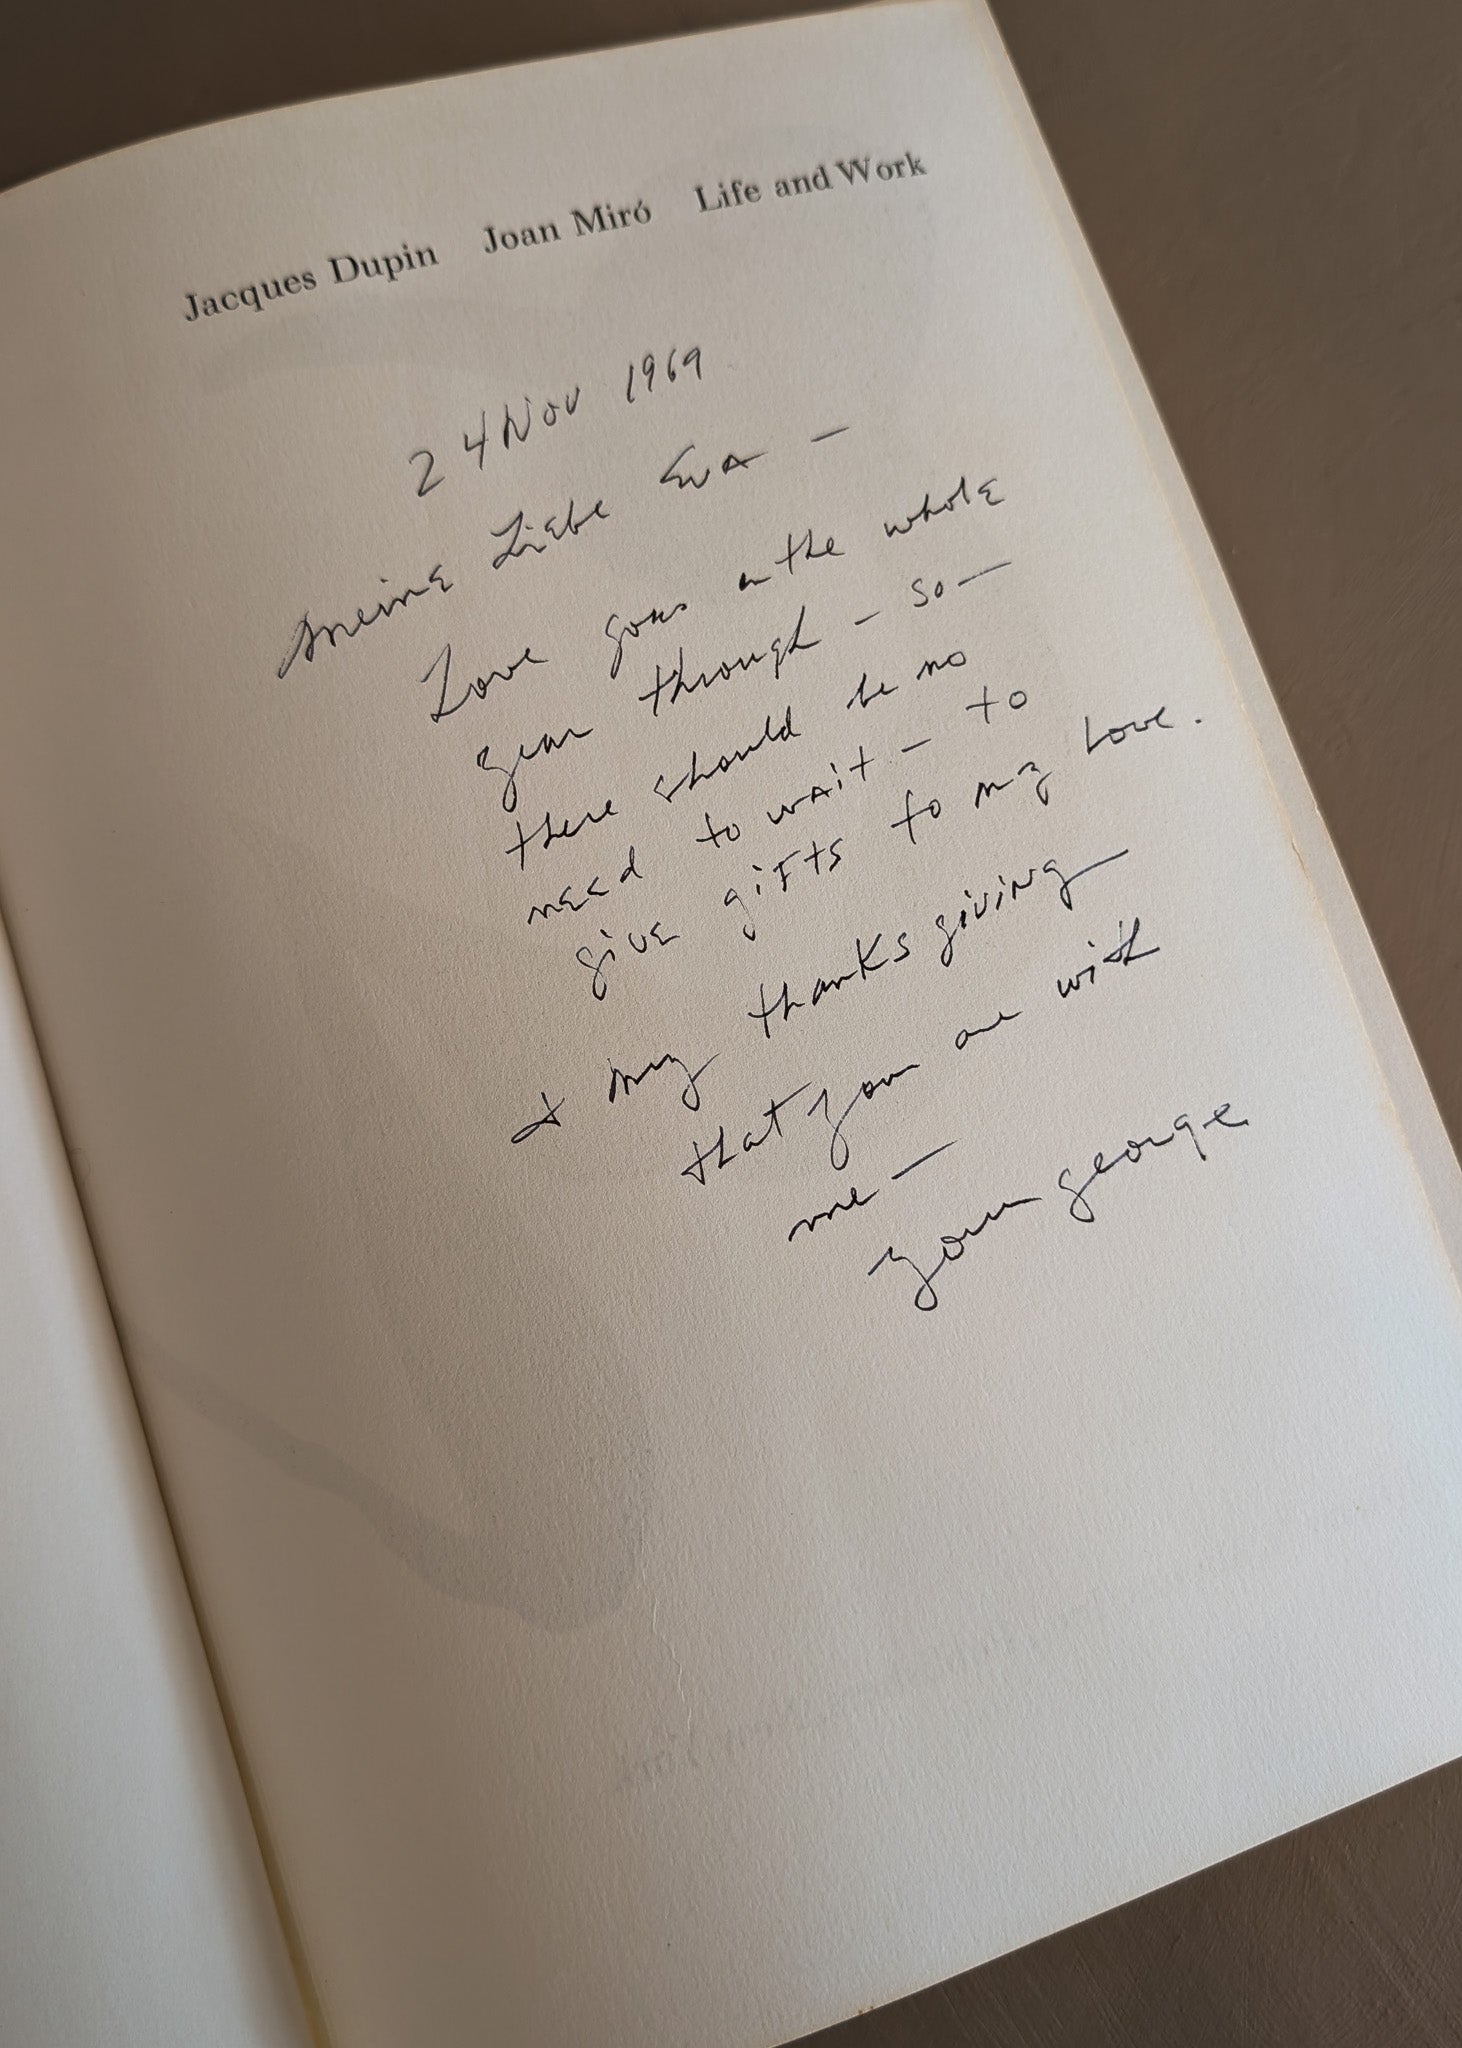 Jacques Dupin Joan Miró Life and Work
24 Nov 1969
Meine Liebe Eva —
Love goes on the whole
year through — so —
there should be no
need to wait — to
give gifts to my Love.
& my thanksgiving
that you are with
me —
your george